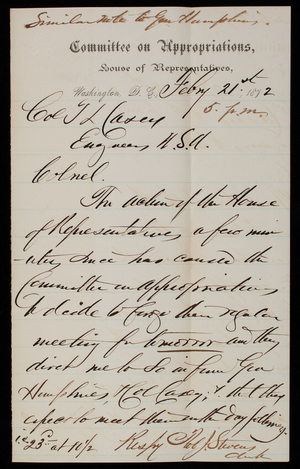 Similar note to Gen Humphreys.
Committee on Appropriations,
House of Representatives,
Washington, D. C., Feby 21st 1872
5. p.m.
Col T L Casey
Engineers U.S.A.
Colonel.
The action of the House
of Representatives a few min
-utes since has caused the
Committee on Appropriations
to decide to forego their regular
meeting for tomorrow and they
direct me to so inform Gen
Humphries, & Col Casey, & that they
expect to meet them on the day following.
i.e. 23rd at 10 1/2
Respy
Stevens
clerk